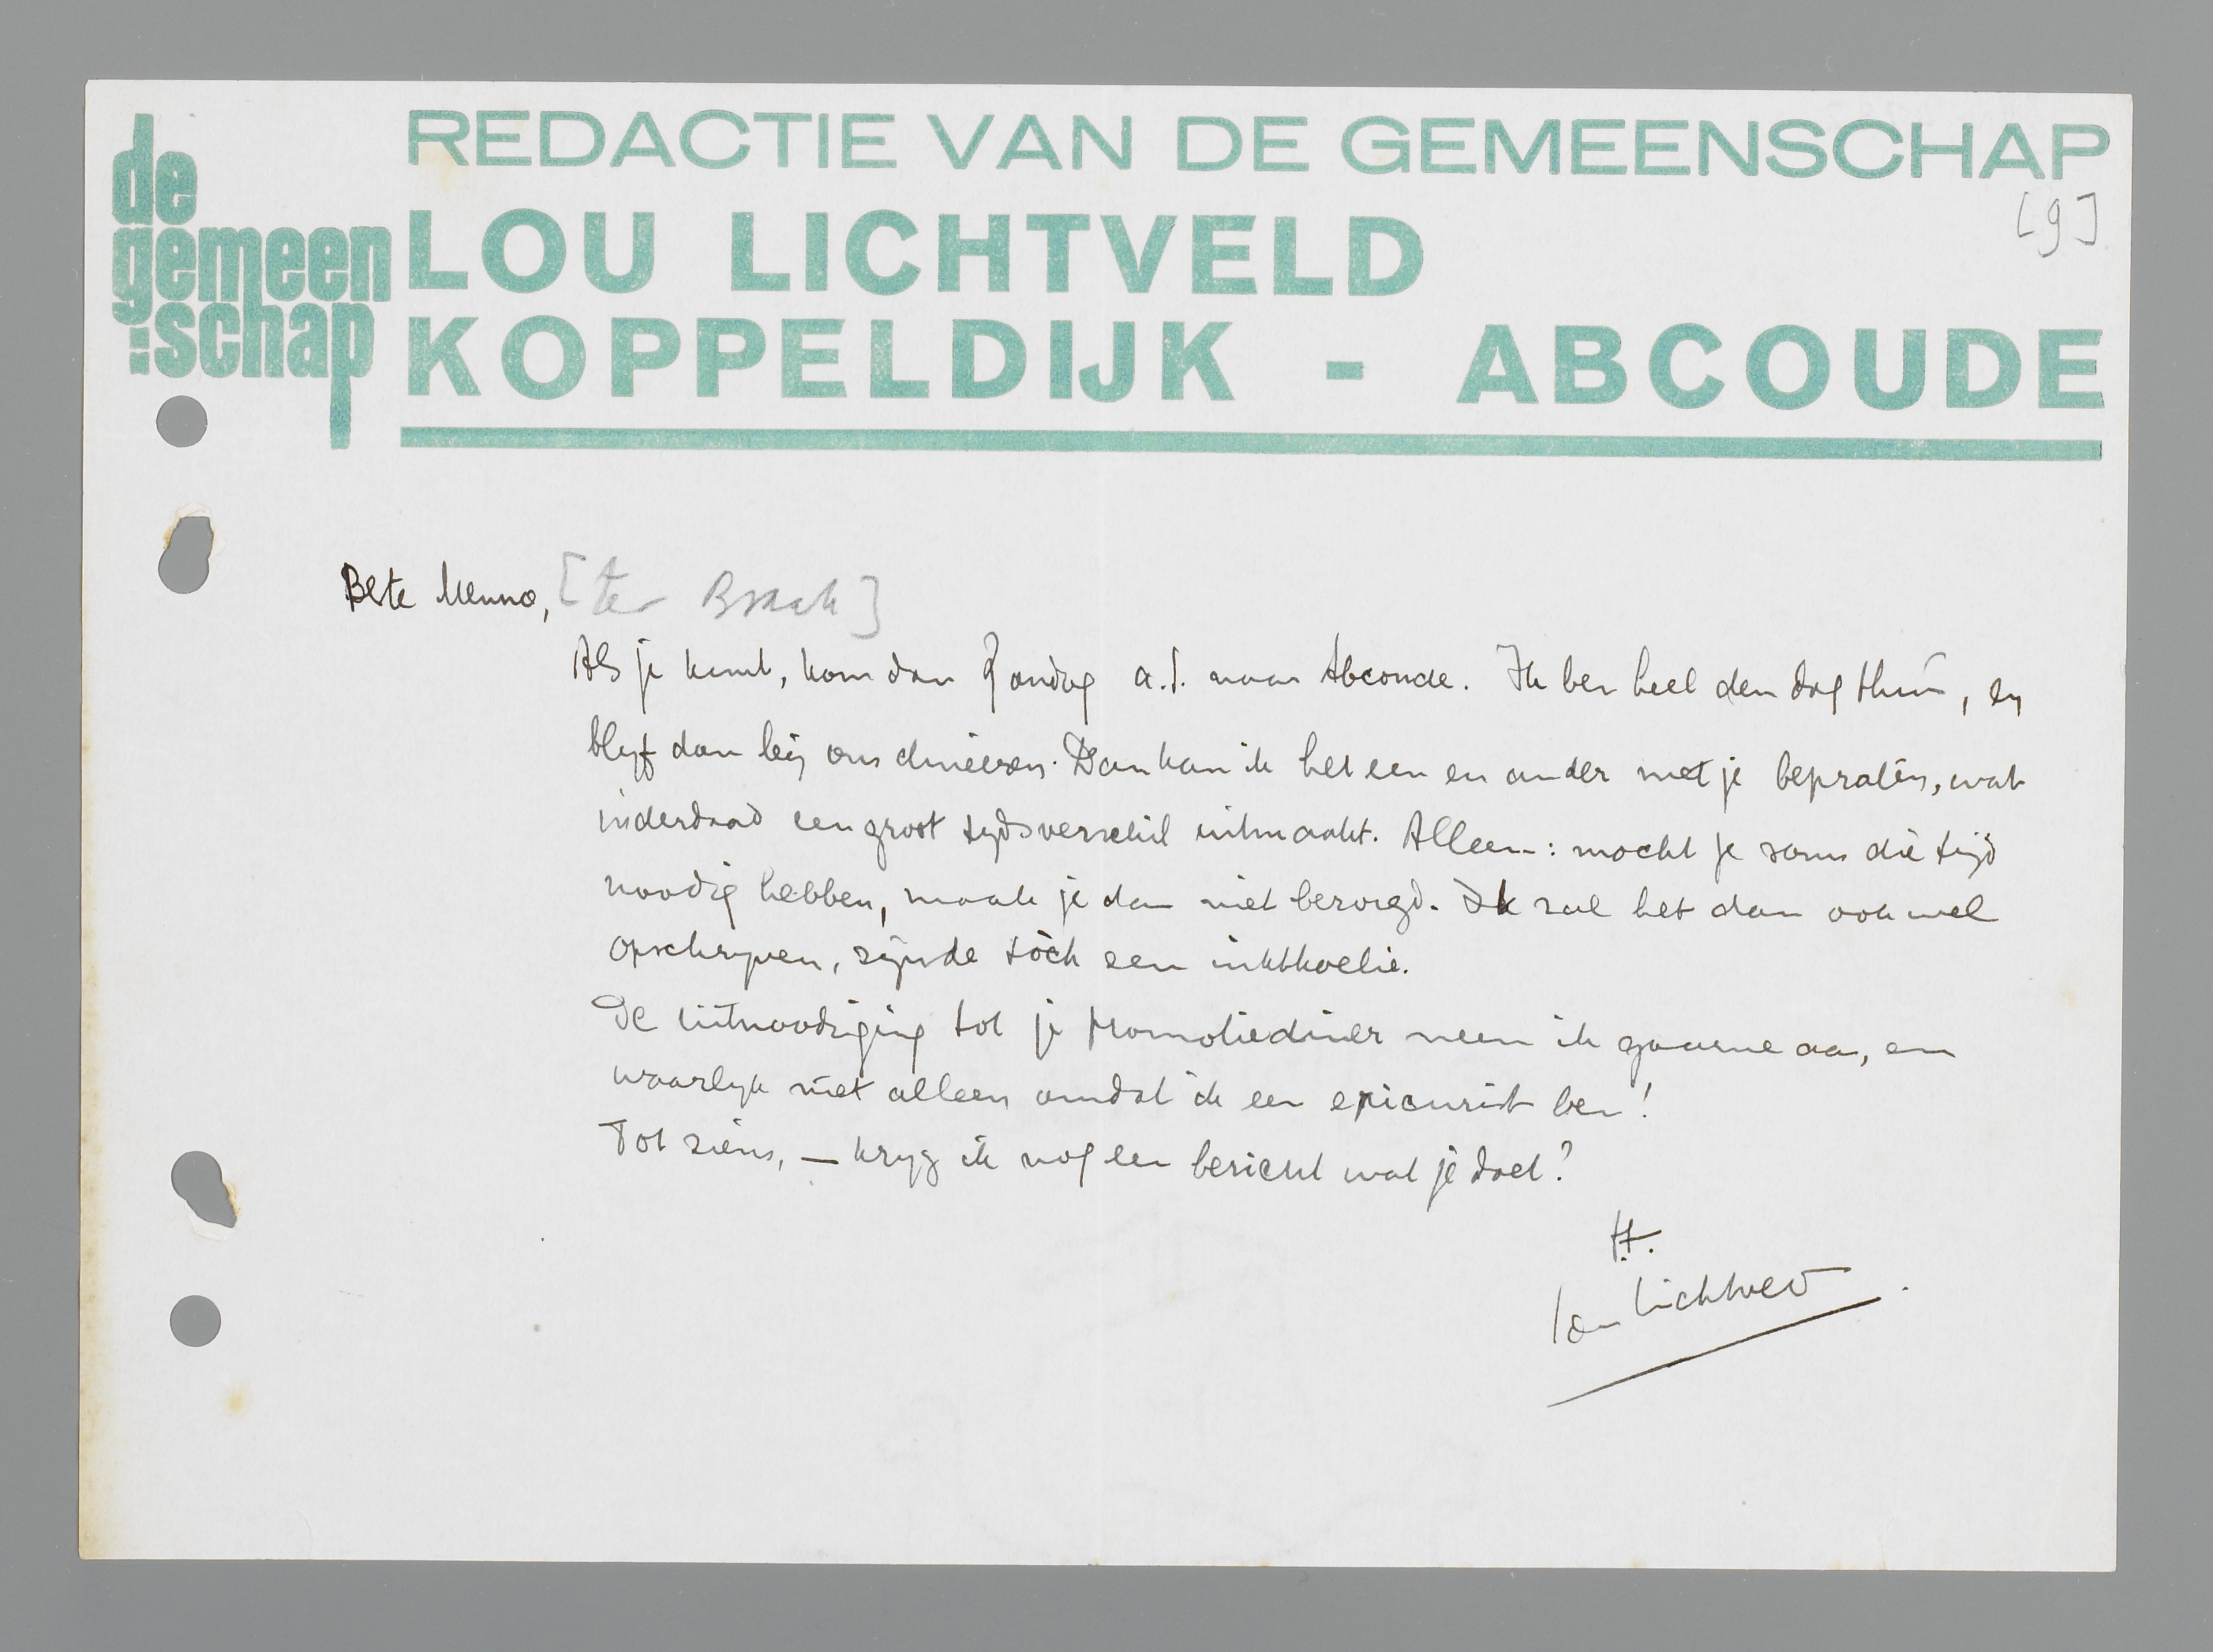 de
gemeen
:schap
REDACTIE VAN DE GEMEENSCHAP
LOU LICHTVELD
KOPPELDIJK - ABCOUDE
[9]
Beste Menno, [ter Braak]
Als je kunt, kom dan Zondag a.s. naar Abcoude. Ik ben heel den dag thuis, en
blijf dan bij ons dineeren. Dan kan ik het een en ander met je bepraten, wat
inderdaad een groot tijdsverschil uitmaakt. Alleen: mocht je soms die tijd
noodig hebben, maak je dan niet bezorgd. Ik zal het dan ook wel
opschrijven, zijnde tòch een inktkoelie.
De uitnoodiging tot je promotiediner neem ik gaarne aan, en
waarlijk niet alleen omdat ik een epicurist ben!
Tot ziens, — krijg ik nog een bericht wat je doet?
tt.
Lou Lichtveld.